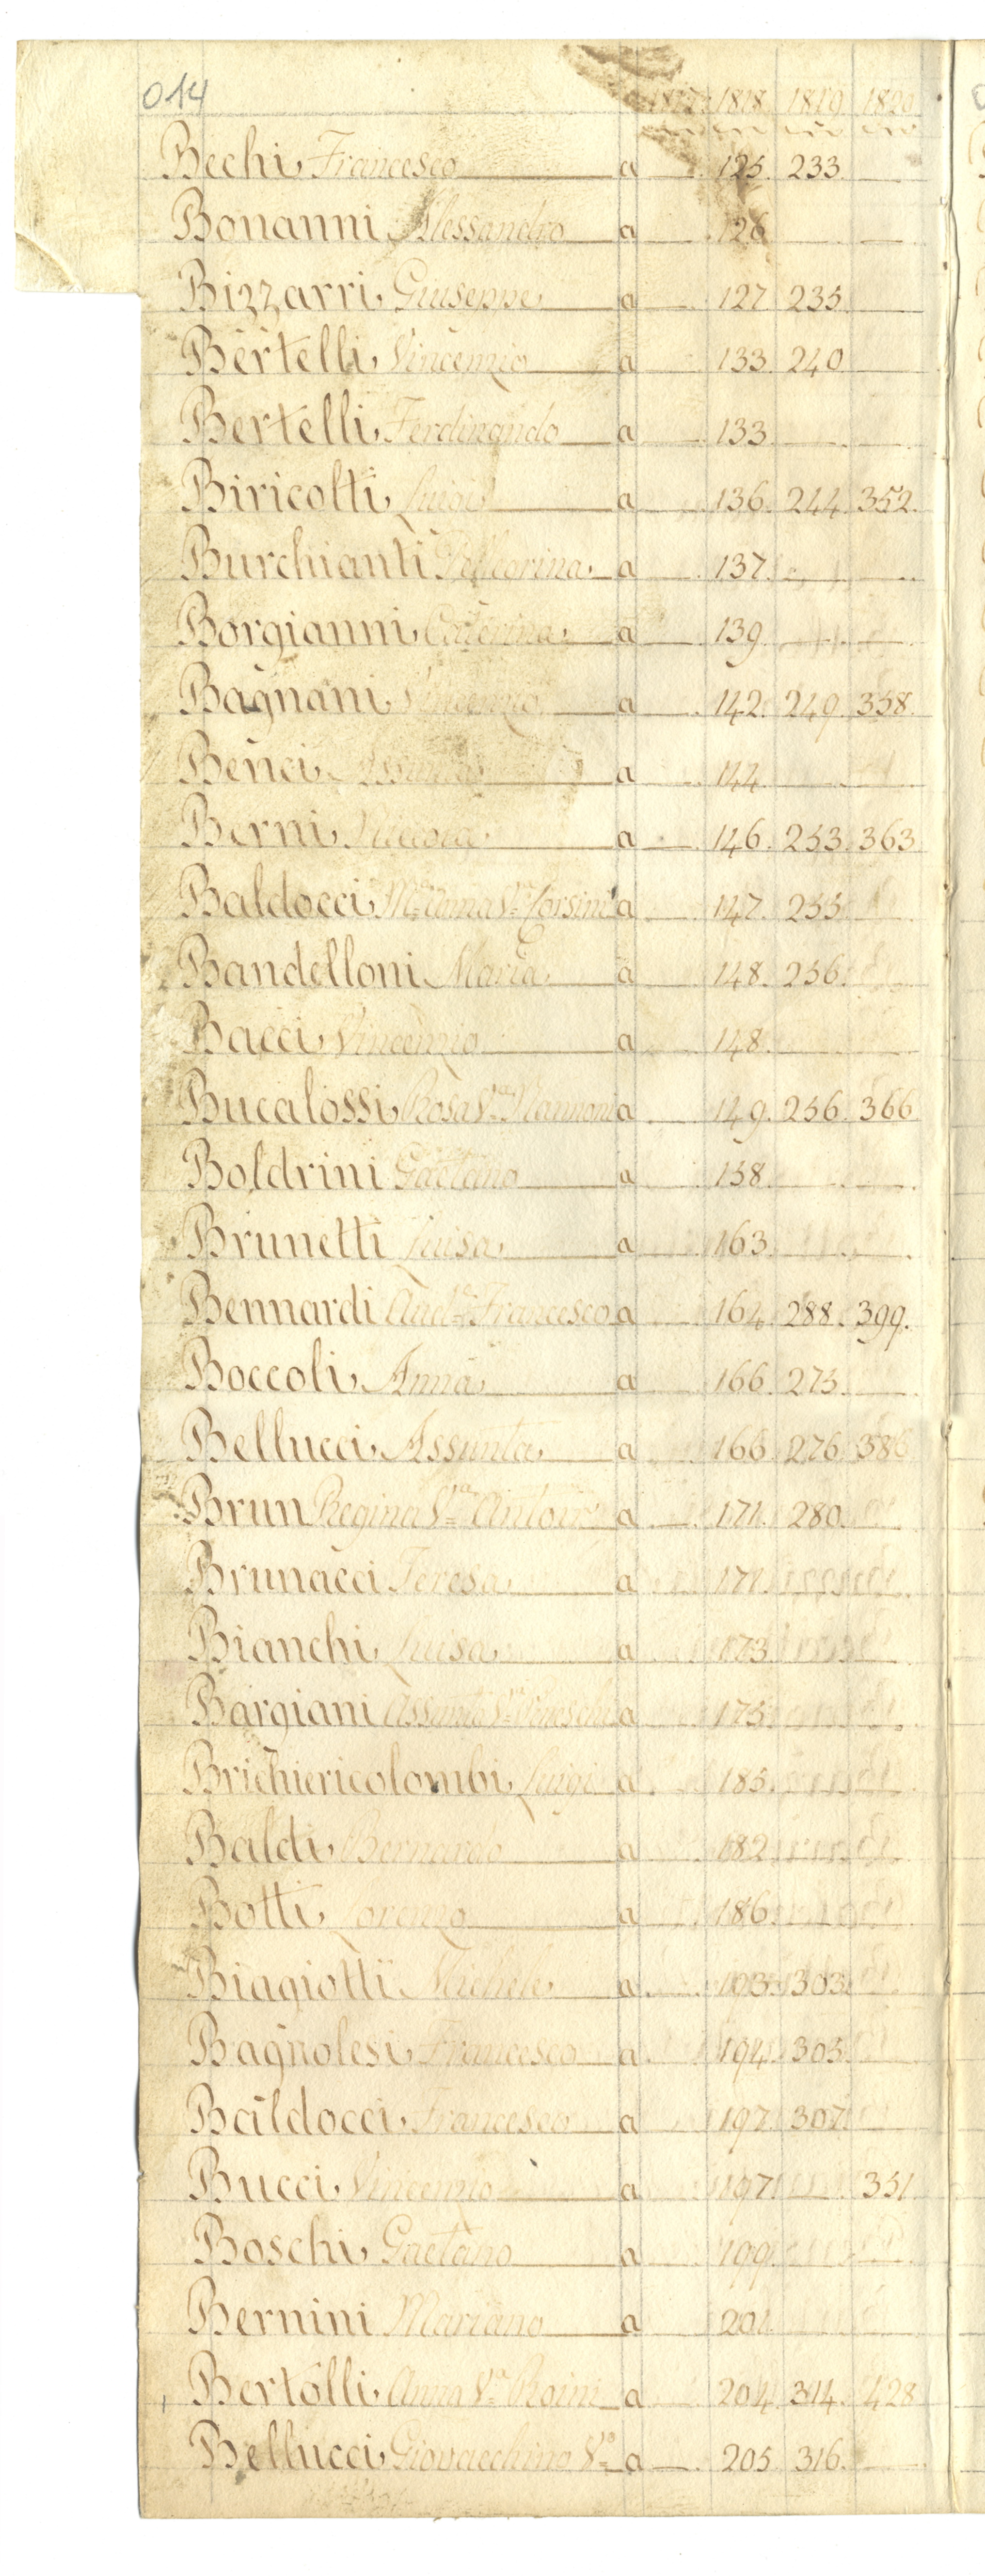 014
1817. 1818. 1819. 1820
Bechi Francesco a 125. 233.
Bonanni Alessandro a 126
Bizzarri Giuseppe a 127. 235.
Bertelli Vincenzio a 133. 240
Bertelli Ferdinando a 133
Biricolti Luigi a 136. 244. 352.
Burchianti Pellegrina a 137.
Borgianni Caterina a 139
Bagnani Vincenzio a 142. 249. 358.
Benci Assunta a 144
Berni a 146. 253. 363
Baldocci Ma. Anna Va. Corsini a 147. 255.
Bandelloni Maria a 148. 256.
Bacci Vincenzio a 148.
Bucalossi Rosa Va. Mannoni a 149. 256. 366
Boldrini Gaetano a 158.
Brunetti Luisa a 163.
Bennardi Francesco a 164. 288. 399.
Boccoli Anna a 166. 275.
Bellucci Assunta a 166. 276. 386
Brun Regina Va. a 171. 280.
Brunacci Teresa a 171.
Bianchi Luisa a 173.
Bargiani Assunta Va. a 175.
Brichiericolombi Luigi a 185.
Baldi Bernardo a 182
Botti Lorenzo a 186.
Biagiotti Michele a 193. 303.
Bagnolesi Francesco a 194. 303.
Baldocci Francesco a 197. 307.
Bucci Vincenzio a 197. 351
Boschi Gaetano a 199.
Bernini Mariano a 201.
Bertolli Anna Va. a 204. 314. 428
Bellucci Giovacchino Vo. a 205. 316.